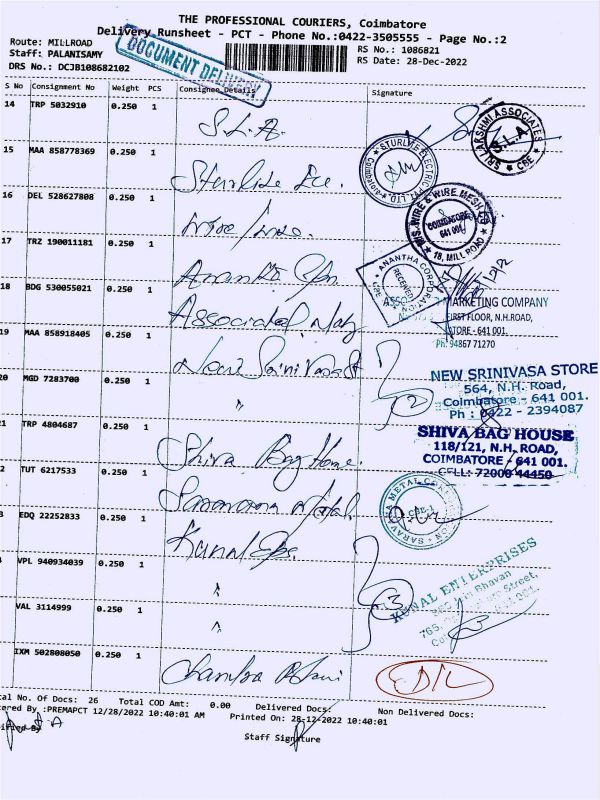 THE PROFESSIONAL COURIERS, Coimbatore
Delivery Runsheet - PCT - Phone No.:0422-3505555 - Page No.:2
Route: MILLROAD
RS No.: 1086821
Staff: PALANISAMY
RS Date: 28-Dec-2022
DRS No.: DCJB108682102
DOCUMENT DELIVERY
S No Consignment No Weight PCS Consignee Details Signature
14 TRP 5032910 0.250 1
S.L.A.
SRI LAKSHMI ASSOCIATES
S.L.A
CBE
15 MAA 858778369 0.250 1
Sturlite Ele.
STURLITE ELECTRIC
Coimbatore
16 DEL 528627808 0.250 1
Wire / Wire.
WIRE & WIRE MESH
COIMBATORE
641 001
18, MILL ROAD
17 TRZ 190011181 0.250 1
Anantha
ANANTHA CORPORATION
RECEIVED
CBE
18 BDG 530055021 0.250 1
Associated
MARKETING COMPANY
FIRST FLOOR, N.H.ROAD,
STORE - 641 001.
Ph: 94867 71270
19 MAA 858918405 0.250 1
New Srinivasa St
NEW SRINIVASA STORE
564, N.H. Road,
Coimbatore - 641 001.
Ph : 0422 - 2394087
20 MGD 7283700 0.250 1
"
2
21 TRP 4804687 0.250 1
Shiva Bag House.
SHIVA BAG HOUSE
118/121, N.H. ROAD,
COIMBATORE - 641 001.
CELL: 72000 44450
2 TUT 6217533 0.250 1
Saravana Metal.
SARAVANA METAL CORPORATION
CBE-1
3 EDQ 22252833 0.250 1
Kunal
KUNAL ENTERPRISES
Bhavan
765,
Street,
VPL 940934039 0.250 1
"
3
VAL 3114999 0.250 1
"
IXM 502808050 0.250 1
Chandra
EDIL
tal No. Of Docs: 26 Total COD Amt: 0.00 Delivered Docs: Non Delivered Docs:
tered By :PREMAPCT 12/28/2022 10:40:01 AM Printed On: 28-12-2022 10:40:01
Staff Signature